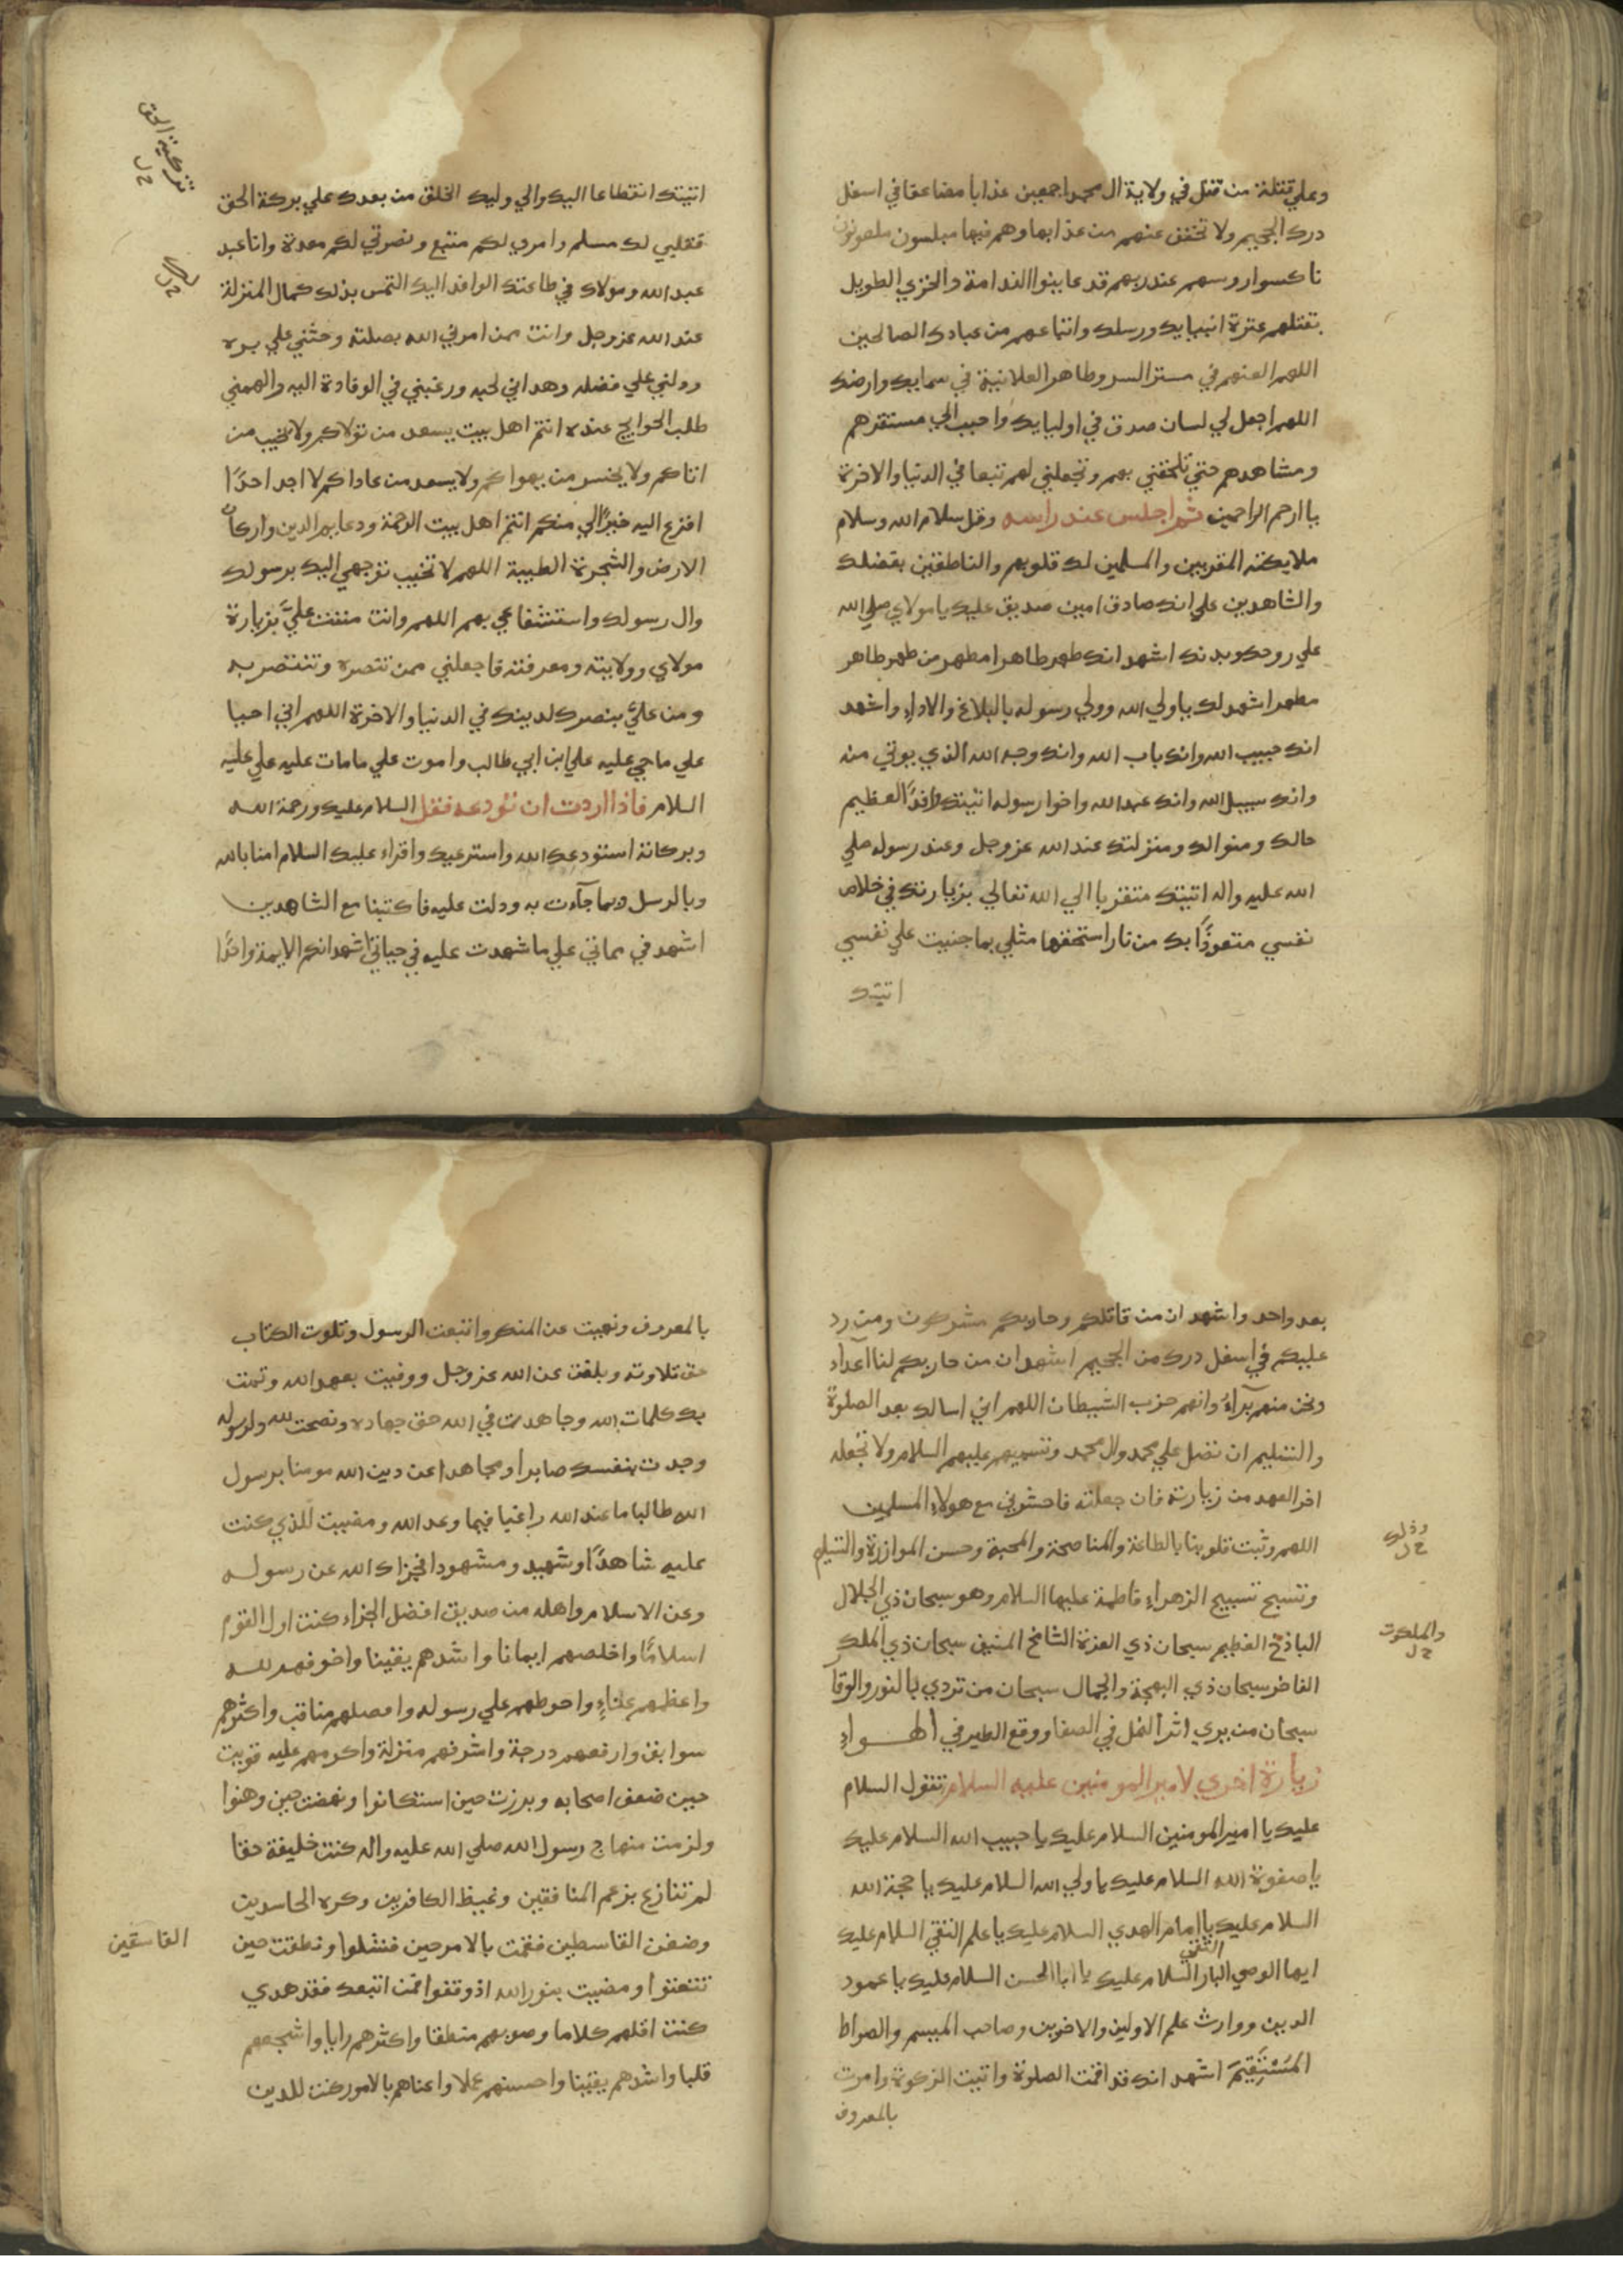 وعلي قتلة من قتل في ولاية ال محمد اجمعين عذابا مضاعفا في اسفل
درك الجحيم ولا تخفف عنهم من عذابها وهم فيها مبلسون ملعونون
ناكسوا روسهم عند ربهم قد عاينوا الندامة والخزي الطويل
بقتلهم عترة انبيايك ورسلك واتباعهم من عبادك الصالحين
اللهم العنهم في مستتر السر وظاهر العلانية في سمايك وارضك
اللهم اجعل لي لسان صدق في اوليايك واحبب الي مستقرهم
ومشاهدهم حتي تلحقني بهم وتجعلني لهم تبعا في الدنيا والاخرة
يا ارحم الراحمين ثم اجلس عند راسه وقل سلام الله وسلام
ملايكته المقربين والمسلمين لك قلوبهم والناطقين بفضلك
والشاهدين علي انك صادق امين صديق عليك يا مولاي صلي الله
علي روحك وبدنك اشهد انك طهر طاهرا مطهر من طهر طاهر
مطهر اشهد لك يا ولي الله وولي رسوله بالبلاغ والاداء واشهد
انك حبيب الله وانك باب الله وانك وجه الله الذي يوتي منه
وانك سبيل الله وانك عبد الله واخوا رسوله اتيتك وافدًا لعظيم
حالك ومنزلتك عند الله عز وجل وعند رسوله صلي
الله عليه واله اتيتك متقربا الي الله تعالي بزيارتك في خلاص
نفسي متعوذًا بك من نار استحقها مثلي بما جنيت علي نفسي
اتيتك
اتيتك انقطاعا اليك والي وليك الخلف من بعدك علي بركة الحق
فقلبي لك مسلم وامري لكم متبع ونصرتي لكم معدة وانا عبد
عبد الله ومولاك في طاعتك الوافد اليك التمس بذلك كمال المنزلة
عند الله عز وجل وانت ممن امرني الله بصلته وحثني علي بره
ودلني علي فضله وهداني لحبه ورغبني في الوفادة اليه والهمني
طلب الحوايج عنده انتم اهل بيت يسعد من تولاكم ولا يخيب من
اتاكم ولا يخسر من يهواكم ولا يسعد من عاداكم لا اجد احدًا
افزع اليه خيرًا لي منكم انتم اهل بيت الرحمة ودعايم الدين واركان
الارض والشجرة الطيبة اللهم لا تخيب توجهي اليك برسولك
وال رسولك واستشفاعي بهم اللهم وانت مننت عليَّ بزيارة
مولاي وولايته ومعرفته فاجعلني ممن تنصره وتنتصر به
ومن عليَّ بنصرك لدينك في الدنيا والاخرة اللهم اني احيا
علي ما حي عليه علي ابن ابي طالب واموت علي ما مات عليه علي عليه
السلام فاذا اردت ان تودعه فقل السلام عليك ورحمة الله
وبركاته استودعك الله واسترعيك واقراء عليك السلام امنا بالله
وبالرسل وبما جآءت به ودلت عليه فاكتبنا مع الشاهدين
اشهد في مماتي علي ما شهدت عليه في حياتي اشهد انكم الايمة واحدًا
تزكية الحق
خ ل
خ ل
بعد واحد واشهد ان من قاتلكم وحاربكم مشركون ومن رد
عليكم في اسفل درك من الجحيم اشهد ان من حاربكم لنا اعدآء
ونحن منهم برآءٌ وانهم حزب الشيطان اللهم اني اسالك بعد الصلوة
والتسليم ان تصل علي محمد وال محمد وتسميهم عليهم السلام ولا تجعله
اخر العهد من زيارته فان جعلته فاحشرني مع هولاء المسلمين
اللهم وثبت قلوبنا بالطاعة والمناصحة والمحبة وحسن الموازرة والتسليم
وتسبح تسبيح الزهراء فاطمة عليها السلام وهو سبحان ذي الجلال
الباذخ العظيم سبحان ذي العزة الشامخ المنيف سبحان ذي الملك
الفاخر سبحان ذي البهجة والجمال سبحان من تردي بالنور والوقا
سبحان من يري اثر النمل في الصفا ووقع الطير في الهواء
زيارة اخري لامير المومنين عليه السلام تقول السلام
عليك يا امير المومنين السلام عليك يا حبيب الله السلام عليك
يا صفوة الله السلام عليك يا ولي الله السلام عليك يا حجة الله
السلام عليك يا امام الهدي السلام عليك يا علم التقي السلام عليك
ايها الوصي البار التقي السلام عليك يا ابا الحسن السلام عليك يا عمود
الدين ووارث علم الاولين والاخرين وصاحب الميسم والصراط
المُسْتَقِيمَ اشهد انك قد اقمت الصلوة واتيت الزكوة وامرت
بالمعروف
وذلك
خ ل
والملكوت
خ ل
بالمعروف ونهيت عن المنكر واتبعت الرسول وتلوت الكتاب
حق تلاوته وبلغت عن الله عز وجل ووفيت بعهد الله وتمت
بك كلمات الله وجاهدت في الله حق جهاده ونصحت لله ولرسوله
وجدت بنفسك صابرا ومجاهدا عن دين الله مومنا برسول
الله طالبا ما عند الله راغبا فيما وعد الله ومضيت للذي كنت
عليه شاهدًا وشهيد ومشهودا فجزاك الله عن رسوله
وعن الاسلام واهله من صديق افضل الجزاء كنت اول القوم
اسلامًا واخلصهم ايمانا واشدهم يقينا واخوفهم لله
واعظمهم عناءٍ واحوطهم علي رسوله وافضلهم مناقب واكثرهم
سوابق وارفعهم درجة واشرفهم منزلة واكرمهم عليه قويت
حين ضعف اصحابه وبرزت حين استكانوا ونهضت حين وهنوا
ولزمت منهاج رسول الله صلي الله عليه واله كنت خليفة حقا
لم تنازع بزعم المنافقين وغيظ الكافرين وكره الحاسدين
وضغن القاسطين فقمت بالامر حين فشلوا ونطقت حين
تتعتعوا ومضيت بنور الله اذ وقفوا فمن اتبعك فقد هدي
كنت اقلهم كلاما وصوبهم منطقا واكثرهم رايا واشجعهم
قلبا واشدهم يقينا واحسنهم عملا واعناهم بالامور كنت للدين
الفاسقين